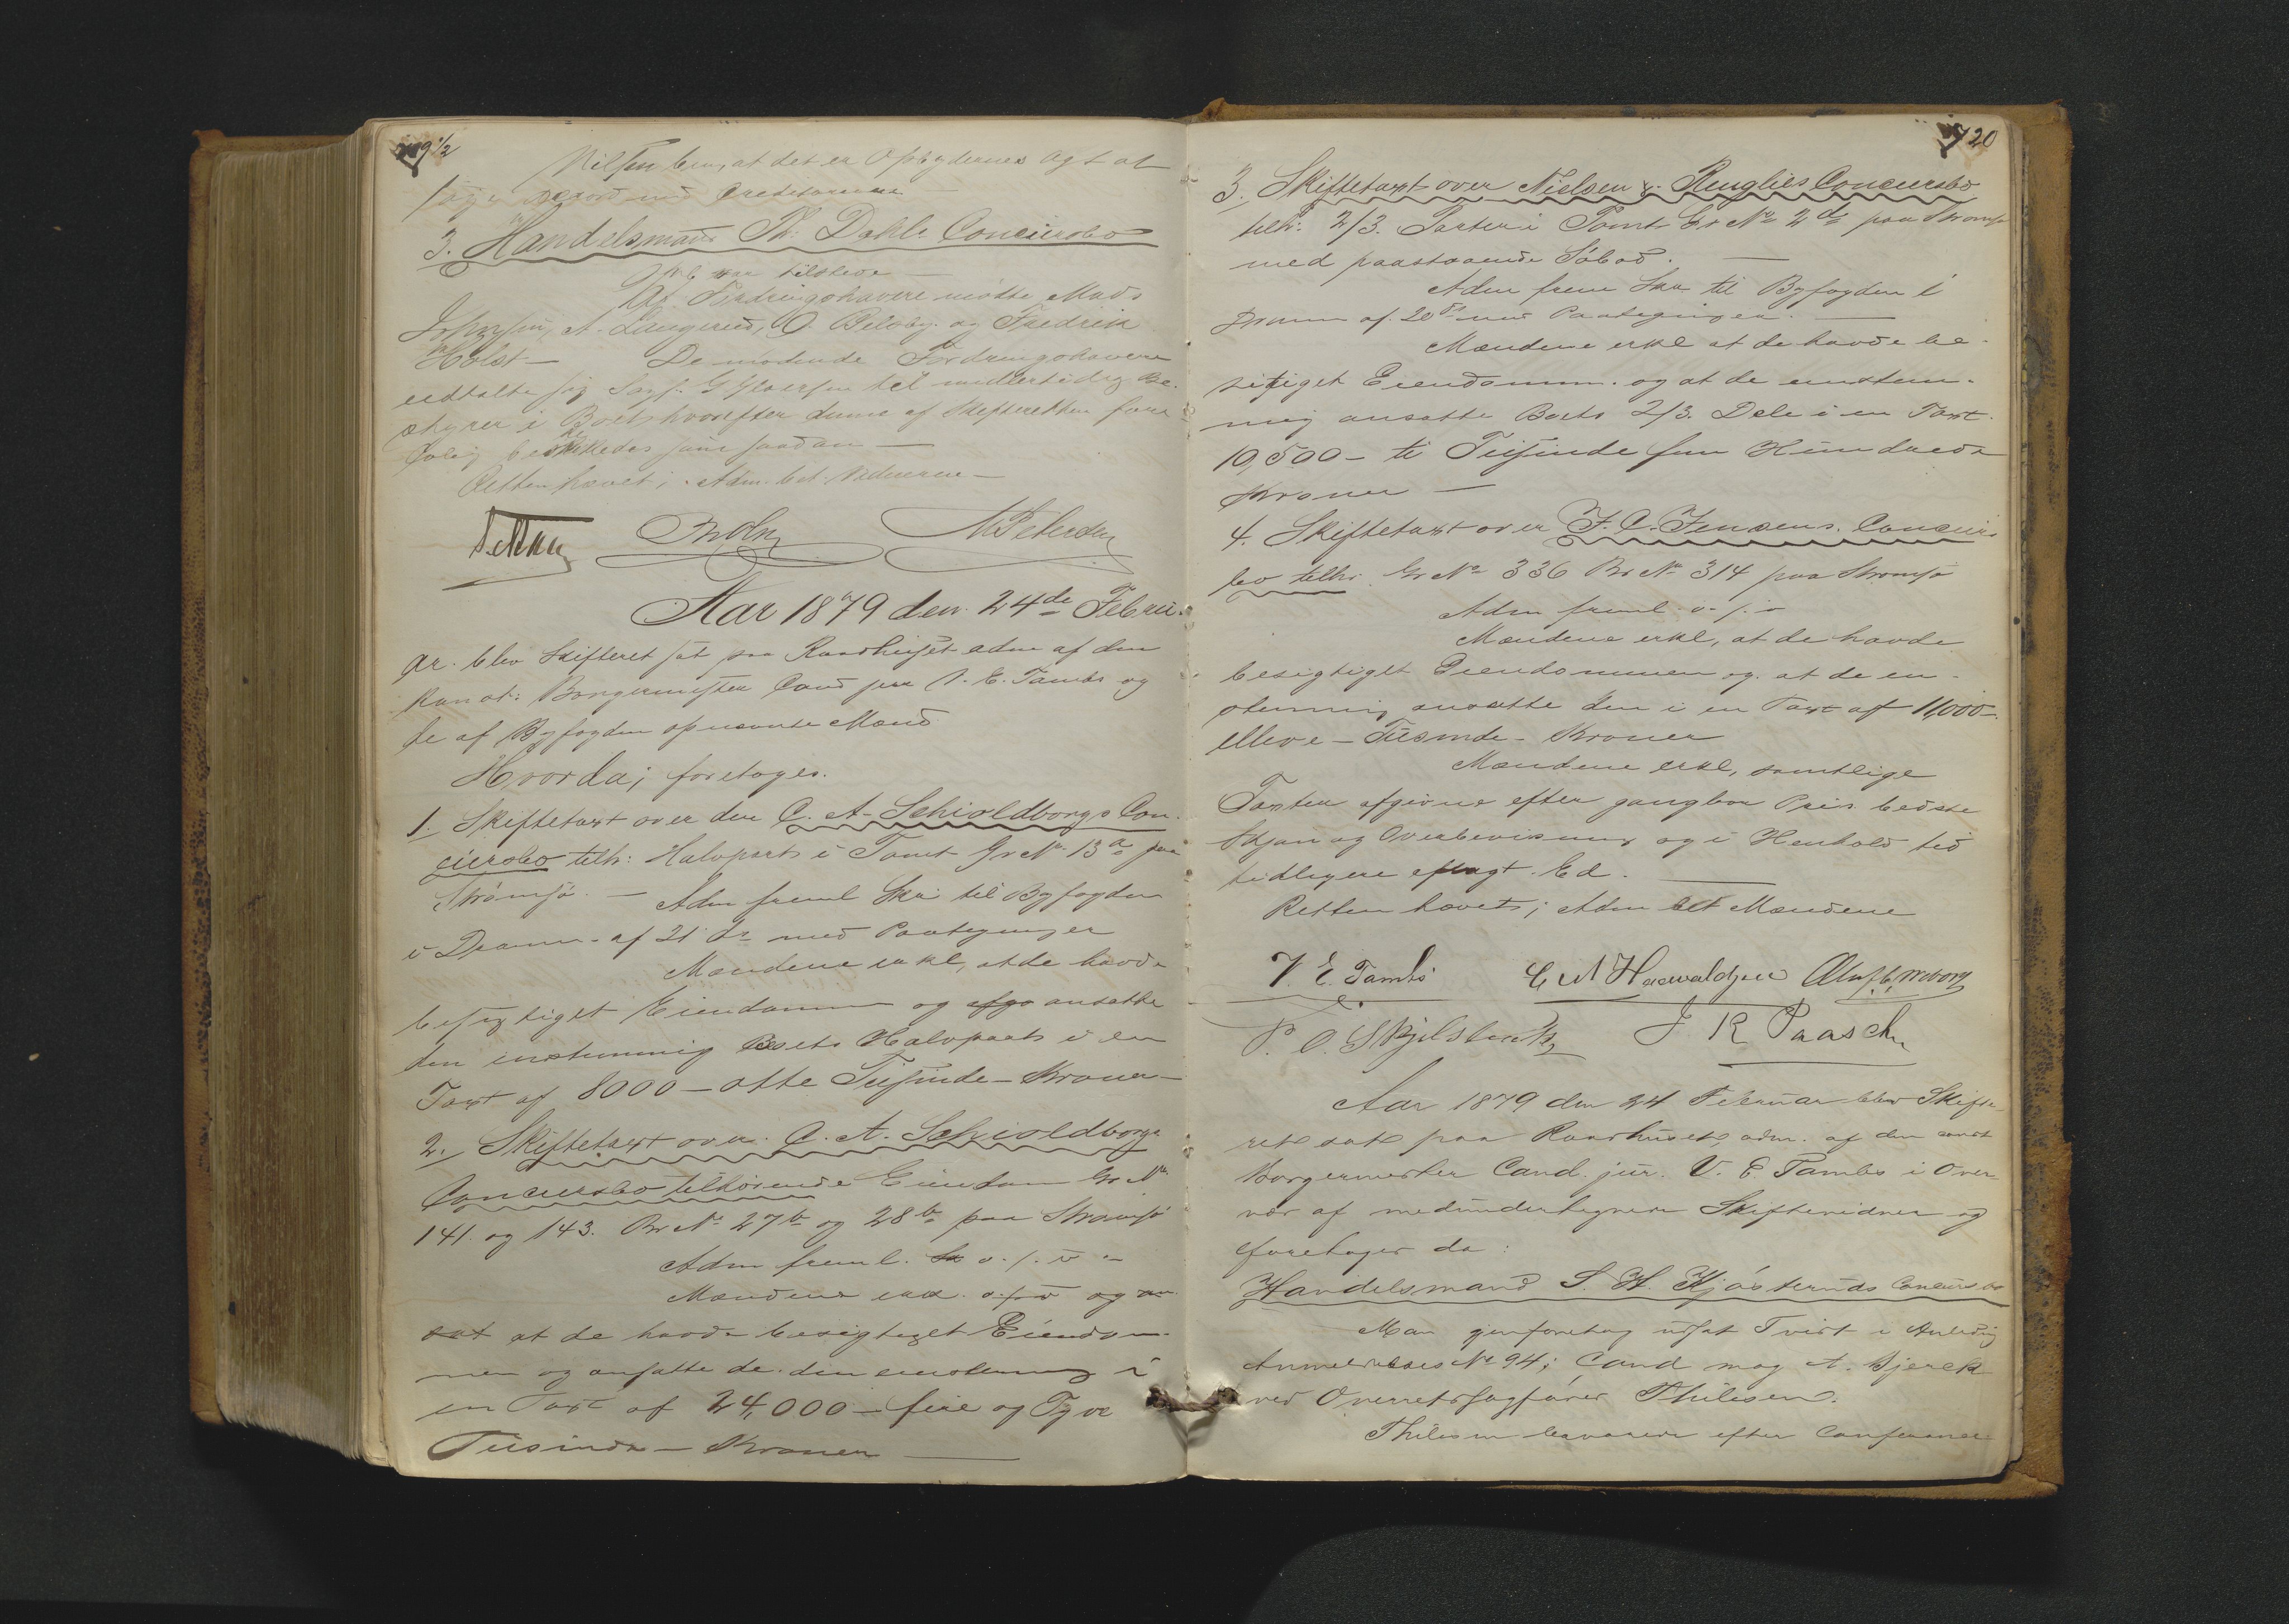 Nilsen bem, at det er Opbydernes Agt at
søge Accord med Creditorerne
3. Handelsmand Th: Dahls Concursbo
var tilstede
Af Fordringshavere mødte Mads
Johnsen, A. Langerud, O. Bilsby og Fredrik
Holst — De mødende Fordringshavere
udtalte sig til midlertidig Be-
styrer i Boet, hvorefter denne af Skifteretten fore
løbig beskikkedes som saadan —
Retten hævet; Adm. bet. Vidnerne —
M Petersen
Aar 1879 den 24de Febru-
ar. blev Skifteret sat paa Raadhuset adm af den
konst: Borgermester Cand jur V. E. Tambs og
de af Byfogden opnævnte Mænd
Hvorda; foretages.
1. Skiftetaxt over den C. A. Schioldborgs Con-
cursbo tilh: Halvpart i Tomt Gr No 13a paa
Strømsø. — Adm freml Skr til Byfogden
i Dramm. af 21 ds med Paategninger
Mændene erkl, at de havde
besigtiget Eiendommen og afgo ansatte
den enstemmig Boets Halvpart i en
Taxt af 8000 — otte Tusinde — Kroner —
2. Skiftetaxt over C. A. Schioldborgs
Concursbo tilhørende Eiendom Gr No
141 og 143. Br No 27b og 28b paa Strømsø
Adm freml. Sk o. f. v
Mændene erkl. o. f. v og an
sat at de havde besigtiget Eiendom-
men og ansatte de den enstemmig i
en Taxt af 24,000 — fire og Tyve
Tusinde — Kroner —
720
3. Skiftetaxt over Nielsen & Ruuglies Concursbo
tilh: 2/3. Parter i Tomt Gr No 2d paa Strømsø
med paastaaende Søbod. —
Adm frem Skr til Byfogden i
Dramm af 20 ds med Paategninger. —
Mændene erkl at de havde be-
sigtiget Eiendomm. og at de enstem-
mig ansatte Boets 2/3. Dele i en Taxt
10,500 — ti Tusinde fem Hundrede
Kroner —
4. Skiftetaxt over F. C. Jensens. Concurs
bo tilh. Gr No 336 Br No 314 paa Strømsø
Adm freml o. f. v
Mændene erkl, at de havde
besigtiget Eiendommen og. at de en-
stemmig ansatte den i en Taxt af 11,000 —
elleve — Tusinde — Kroner
Mændene erkl, samtlige
Taxter afgivne efter gangbar Priis bedste
Skjøn og Overbevisning og i Henhold til
tidligere aflagt Ed. —
Retten hævet; Adm bet Mændene
V. E. Tambs C M Haavaldsen
P. O. J R Paasche
Aar 1879 den 24 Februar blev Skifte-
ret sat paa Raadhuset, adm. af den const
Borgermester Cand. jur. V. E Tambs i Over-
vær af medundertegnede Skiftevidner og
foretoges da:
Handelsmand S. H. Kjøsteruds Concursbo
Man gjenforetog udsat Tvist i Anledning
Anmeldelses No 94; Cand mag A. Bjerck
ved Overretssagfører Thilesen.
Thilesen leverede efter Conference